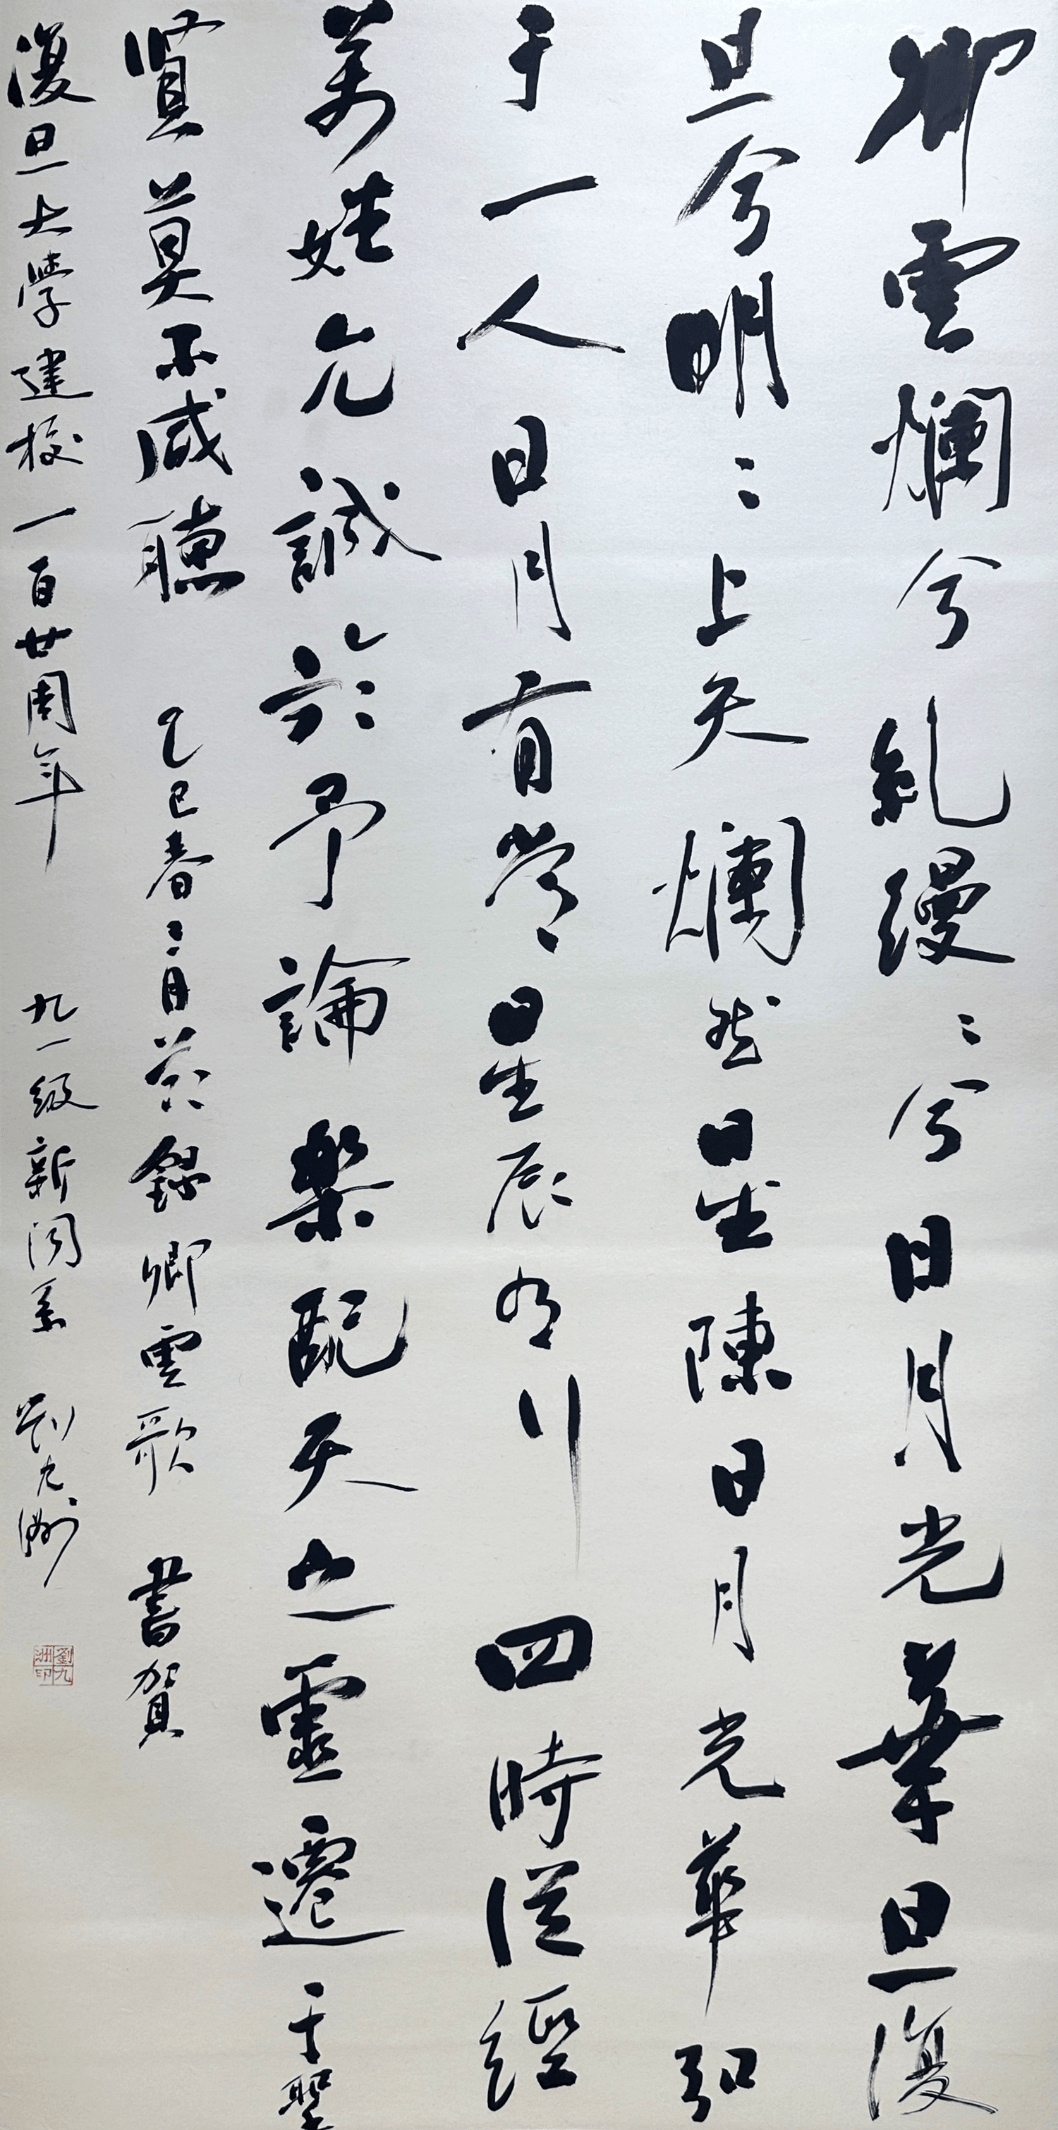 卿雲爛兮糺縵〻兮日月光華旦復
旦兮明〻上天爛然星陳日月光華弘
于一人日月有常星辰有行四時從經
萬姓允誠於予論樂配天之靈遷于聖
賢莫不咸聽 乙巳春二月 敬錄卿雲歌 書賀
復旦大學建校一百廿周年 九一級新闻系 劉九洲
劉九洲印